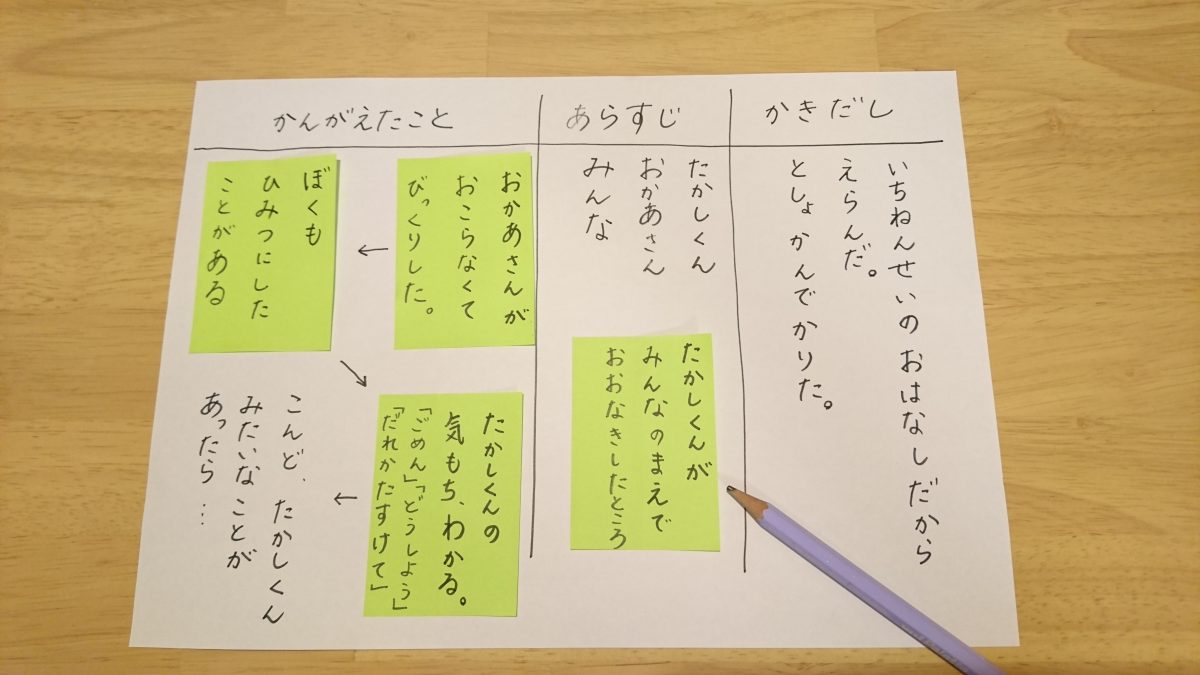 かきだし
いちねんせいの おはなしだから
えらんだ。
としょかんでかりた。
あらすじ
たかしくん
おかあさん
みんな
たかしくんが
みんなのまえで
おおなきしたところ
かんがえたこと
おかあさんが
おこらなくて
びっくりした。
←
ぼくも
ひみつにした
ことがある
↘
たかしくんの
気もち、わかる。
「ごめん」「どうしよう」
「だれかたすけて」
←
こんど、たかしくん
みたいな ことが
あったら…